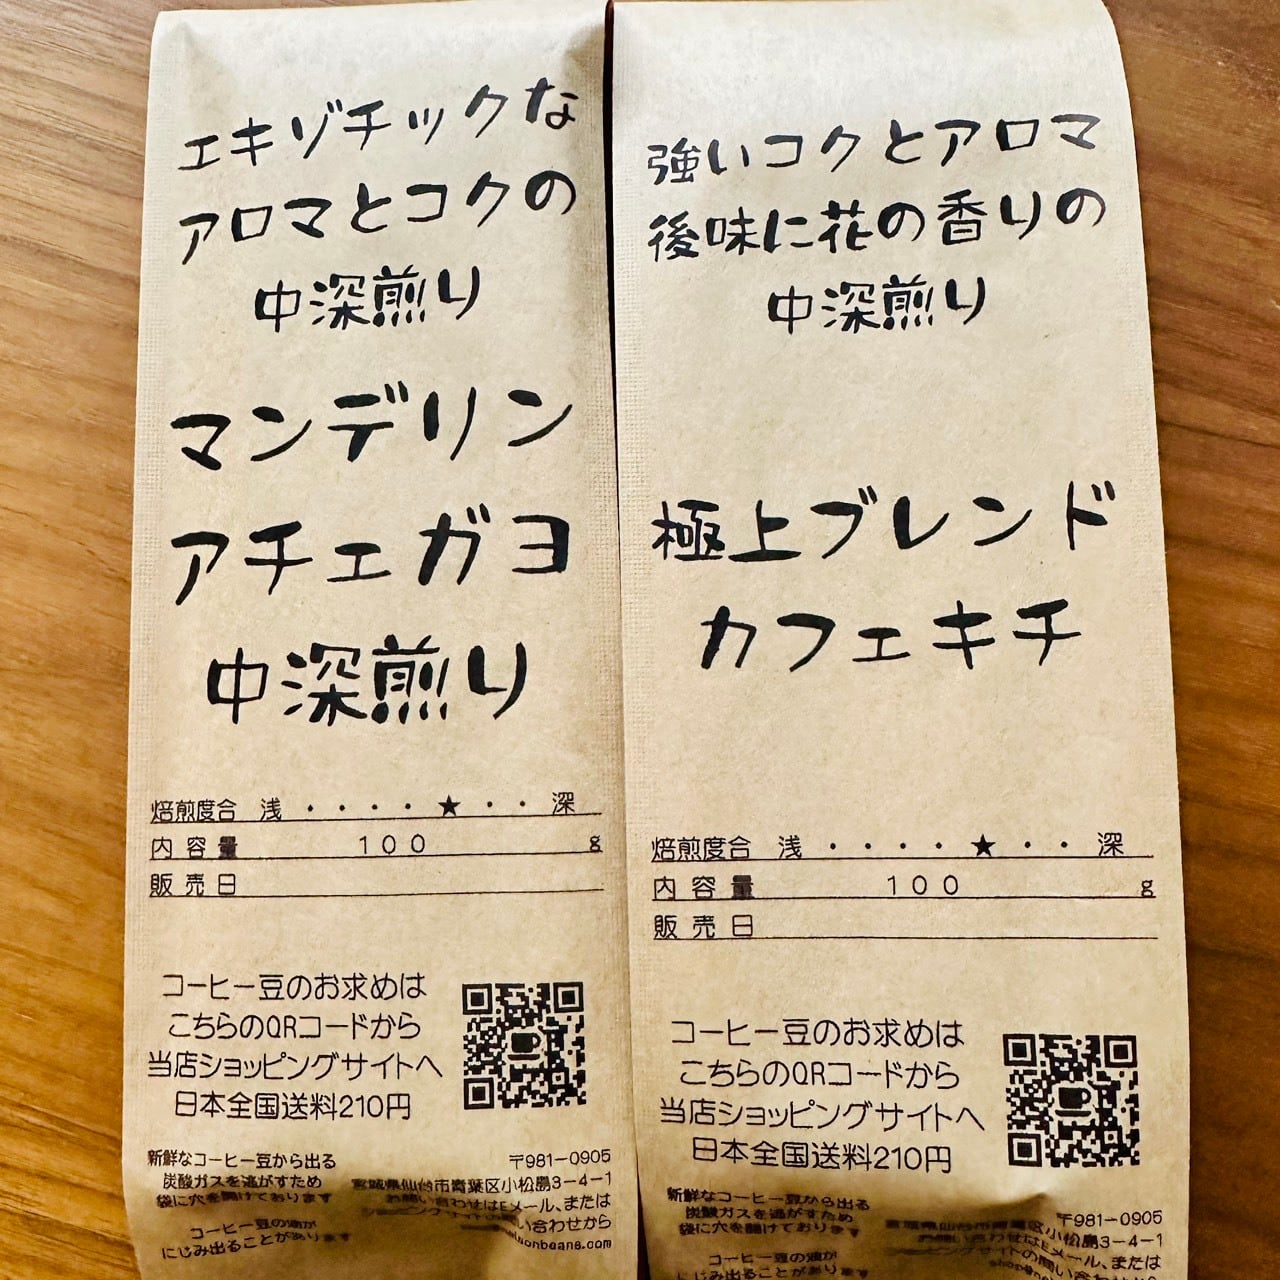 エキゾチックな
アロマとコクの
中深煎り
マンデリン
アチェガヨ
中深煎り
焙煎度合 浅 ・・・・★・・ 深
内容量 100 g
販売日
コーヒー豆のお求めは
こちらのQRコードから
当店ショッピングサイトへ
日本全国送料210円
新鮮なコーヒー豆から出る
炭酸ガスを逃がすため
袋に穴を開けております
コーヒー豆の油が
にじみ出ることがあります
〒981-0905
宮城県仙台市青葉区小松島3-4-1
お問い合わせはEメール、または
ショッピングサイトの問い合わせから
強いコクとアロマ
後味に花の香りの
中深煎り
極上ブレンド
カフェキチ
焙煎度合 浅 ・・・・★・・ 深
内容量 100 g
販売日
コーヒー豆のお求めは
こちらのQRコードから
当店ショッピングサイトへ
日本全国送料210円
新鮮なコーヒー豆から出る
炭酸ガスを逃がすため
袋に穴を開けております
コーヒー豆の油が
にじみ出ることがあります
〒981-0905
宮城県仙台市青葉区小松島3-4-1
お問い合わせはEメール、または
ショッピングサイトの問い合わせから